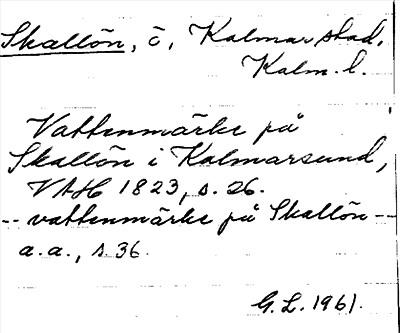 Skallön, ö, Kalmar stad,
Kalm. l.
Vattenmärke på
Skallön i Kalmarsund,
VAH 1823, s. 26.
-- vattenmärke på Skallön --
a.a., s 36.
G.L. 1961.